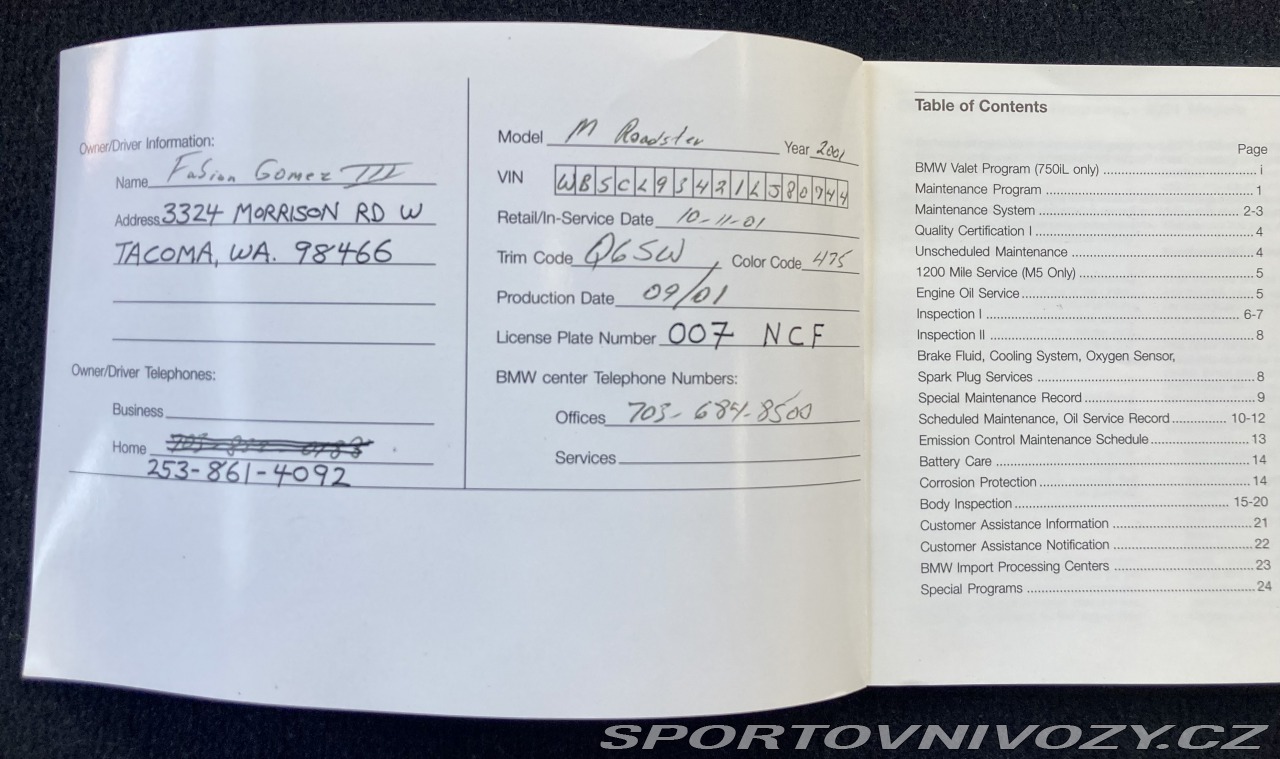 Owner/Driver Information:
Name Fabian Gomez III
Address 3324 MORRISON RD W
TACOMA, WA. 98466
Owner/Driver Telephones:
Business
Home
253-861-4092
Model M Roadster Year 2001
VIN WBSCL93421LJ80744
Retail/In-Service Date 10-11-01
Trim Code Q6SW Color Code 475
Production Date 09/01
License Plate Number 007 NCF
BMW center Telephone Numbers:
Offices 703-684-8500
Services
Table of Contents
Page
BMW Valet Program (750iL only) i
Maintenance Program 1
Maintenance System 2-3
Quality Certification I 4
Unscheduled Maintenance 4
1200 Mile Service (M5 Only) 5
Engine Oil Service 5
Inspection I 6-7
Inspection II 8
Brake Fluid, Cooling System, Oxygen Sensor,
Spark Plug Services 8
Special Maintenance Record 9
Scheduled Maintenance, Oil Service Record 10-12
Emission Control Maintenance Schedule 13
Battery Care 14
Corrosion Protection 14
Body Inspection 15-20
Customer Assistance Information 21
Customer Assistance Notification 22
BMW Import Processing Centers 23
Special Programs 24
SPORTOVNIVOZY.CZ